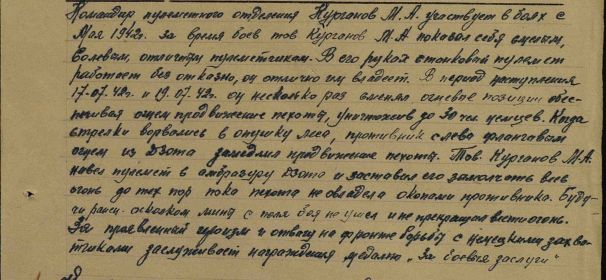 Командир пулеметного отделения Курганов М.А. участвует в боях с
Мая 1942г. За время боев тов Курганов М.А показал себя смелым,
болевым, отличным пулеметчиком. В его руках станковый пулемет
работает без отказно, он отлично им владеет. В период наступления
17.07.42г. и 19.07.42г. он несколько раз сменял огневые позиции обес-
печивая огнем продвижение пехоты, уничтожив до 30 чел немцев. Когда
стрелки ворвались в опушку леса, противник слева фланговым
огнем из Дзота замедлил продвижение пехоты. Тов. Курганов М.А.
навел пулемет в амбразуру Дзота и заставил его замолчать весь
огонь до тех пор пока пехота не овладела окопами противника. Буду-
чи ранен осколком мины с поля боя не ушел и не прекращал вести огонь.
За проявленный героизм и отвагу на фронте борьбы с немецкими захва-
тчиками заслуживает награждения медалью "За боевые заслуги"